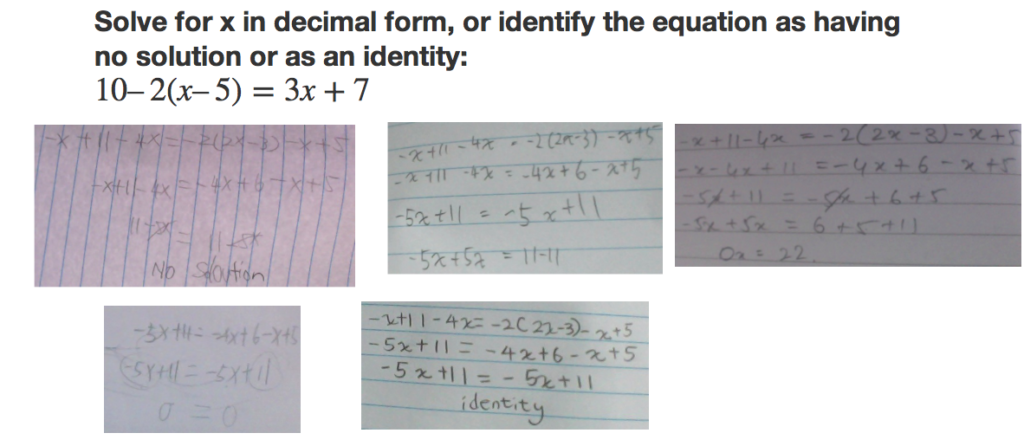 Solve for x in decimal form, or identify the equation as having
no solution or as an identity:
10– 2(x– 5) = 3x + 7
-x + 11 - 4x = -2(2x-3) -x+5
-x+11-4x = -4x+6-x+5
11-5x = 11-5x
No Solution
-x+11 -4x = -2(2x-3) -x+5
-x+11 -4x = -4x+6-x+5
-5x+11 = -5x+11
-5x+5x = 11-11
-x+11-4x = -2(2x-3)-x+5
-x-4x+11 = -4x+6-x+5
-5x+11 = -5x+6+5
-5x+5x = 6+5+11
0x = 22
-5x+11= -4x+6-x+5
-5x+11 = -5x+11
0 = 0
-x+11-4x= -2(2x-3)-x+5
-5x+11 = -4x+6-x+5
-5x+11 = -5x+11
identity